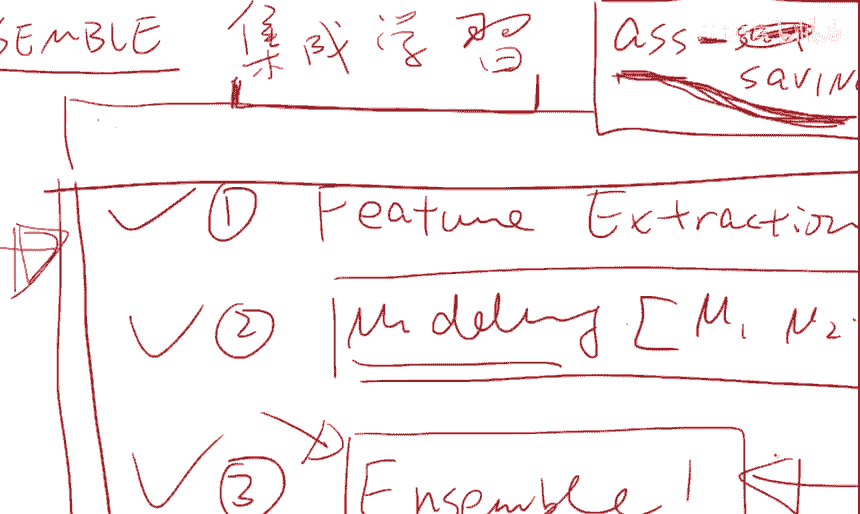 SEMBLE 集成学習
ass-
SAVIN
① Feature Extraction
② Modeling [M1 M2
③ Ensemble!